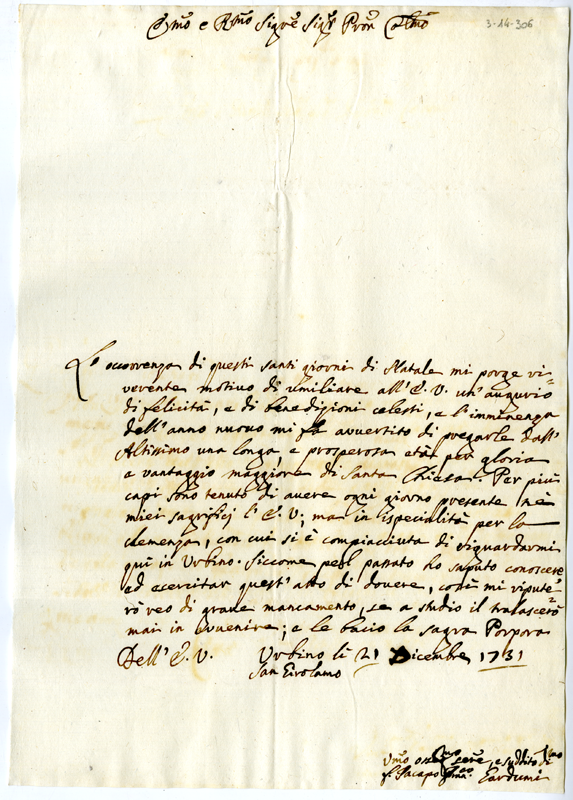 Emo e Rmo Sigre Sigr Pron Colmo
3-14-306
L'occorrenza di questi santi giorni di Natale mi porge ri=
verente motivo di umiliare all'E. V. un'augurio
di felicità, e di benedizioni celesti, e l'imminenza
dell'anno nuovo mi fà avvertito di pregarle dall'
Altissimo una longa, e prosperosa età per gloria
e vantaggio maggiore di Santa Chiesa. Per più
capi sono tenuto di avere ogni giorno presente nè
miei sagrificj l'E. V., ma in ispecialità per la
clemenza, con cui si è compiaciuta di riguardarmi
quì in Urbino. Siccome pel passato ho saputo conoscere
ed esercitar quest'atto di dovere, così mi repute=
rò reo di grave mancamento, se a studio il tralascerò
mai in avvenire; e le bacio la sagra Porpora
Dell'E. V. Urbino li 21 Dicembre 1731
San Girolamo
Umo serre, e suddito
f. Jacapo Lardumi